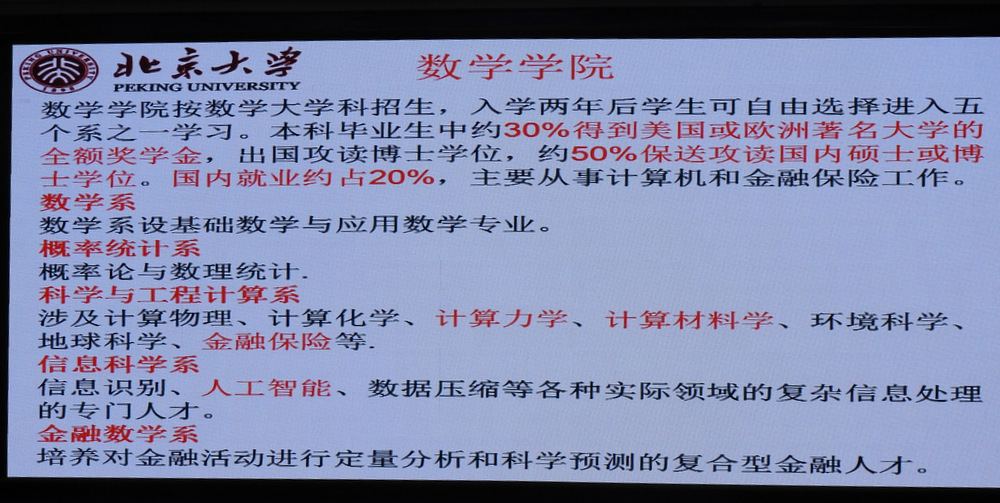 PEKING UNIVERSITY
1898
北京大学
PEKING UNIVERSITY
数学学院
数学学院按数学大学科招生，入学两年后学生可自由选择进入五
个系之一学习。本科毕业生中约30%得到美国或欧洲著名大学的
全额奖学金，出国攻读博士学位，约50%保送攻读国内硕士或博
士学位。国内就业约占20%，主要从事计算机和金融保险工作。
数学系
数学系设基础数学与应用数学专业。
概率统计系
概率论与数理统计.
科学与工程计算系
涉及计算物理、计算化学、计算力学、计算材料学、环境科学、
地球科学、金融保险等.
信息科学系
信息识别、人工智能、数据压缩等各种实际领域的复杂信息处理
的专门人才。
金融数学系
培养对金融活动进行定量分析和科学预测的复合型金融人才。